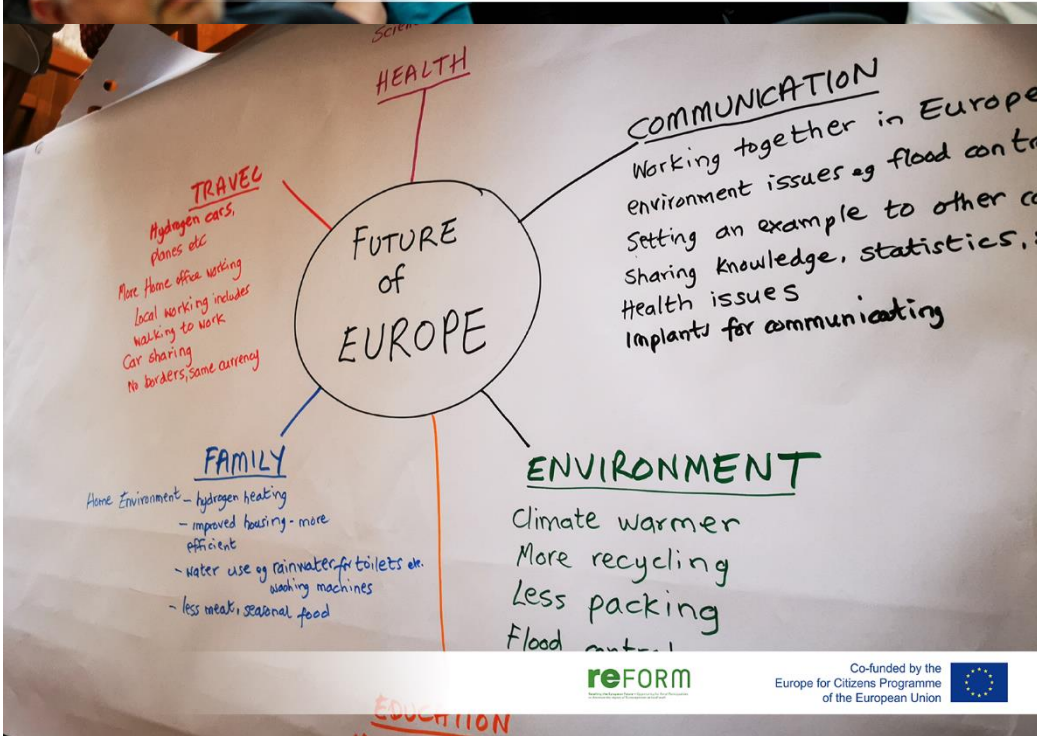 HEALTH
COMMUNICATION
Working together in Europe
environment issues eg flood
Setting an example to other
Sharing knowledge, statistics,
Health issues
Implants for communicating
TRAVEL
Hydrogen cars,
planes etc
More Home office working
Local working includes
walking to work
Car sharing
No borders, same currency
FUTURE
of
EUROPE
FAMILY
Home Environment – hydrogen heating
– improved housing - more
efficient
– water use eg rainwater for toilets etc.
washing machines
– less meat, seasonal food
ENVIRONMENT
Climate warmer
More recycling
Less packing
Flood
EDUCATION
reFORM
Co-funded by the
Europe for Citizens Programme
of the European Union